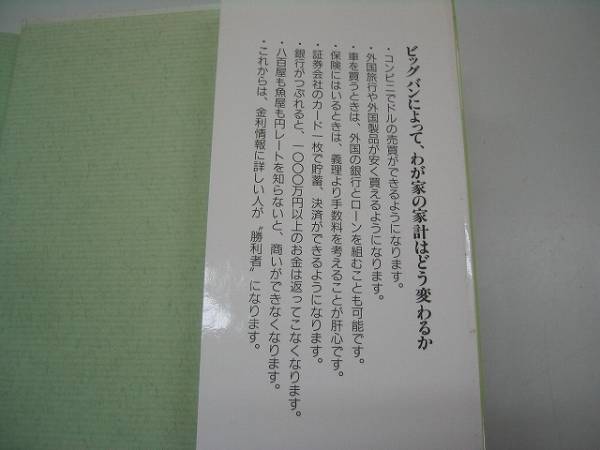 ビッグバンによって、わが家の家計はどう変わるか
・コンビニでドルの売買ができるようになります。
・外国旅行や外国製品が安く買えるようになります。
・車を買うときは、外国の銀行とローンを組むことも可能です。
・保険にはいるときは、義理より手数料を考えることが肝心です。
・証券会社のカード一枚で貯蓄、決済ができるようになります。
・銀行がつぶれると、一〇〇〇万円以上のお金は返ってこなくなります。
・八百屋も魚屋も円レートを知らないと、商いができなくなります。
・これからは、金利情報に詳しい人が〝勝利者〟になります。